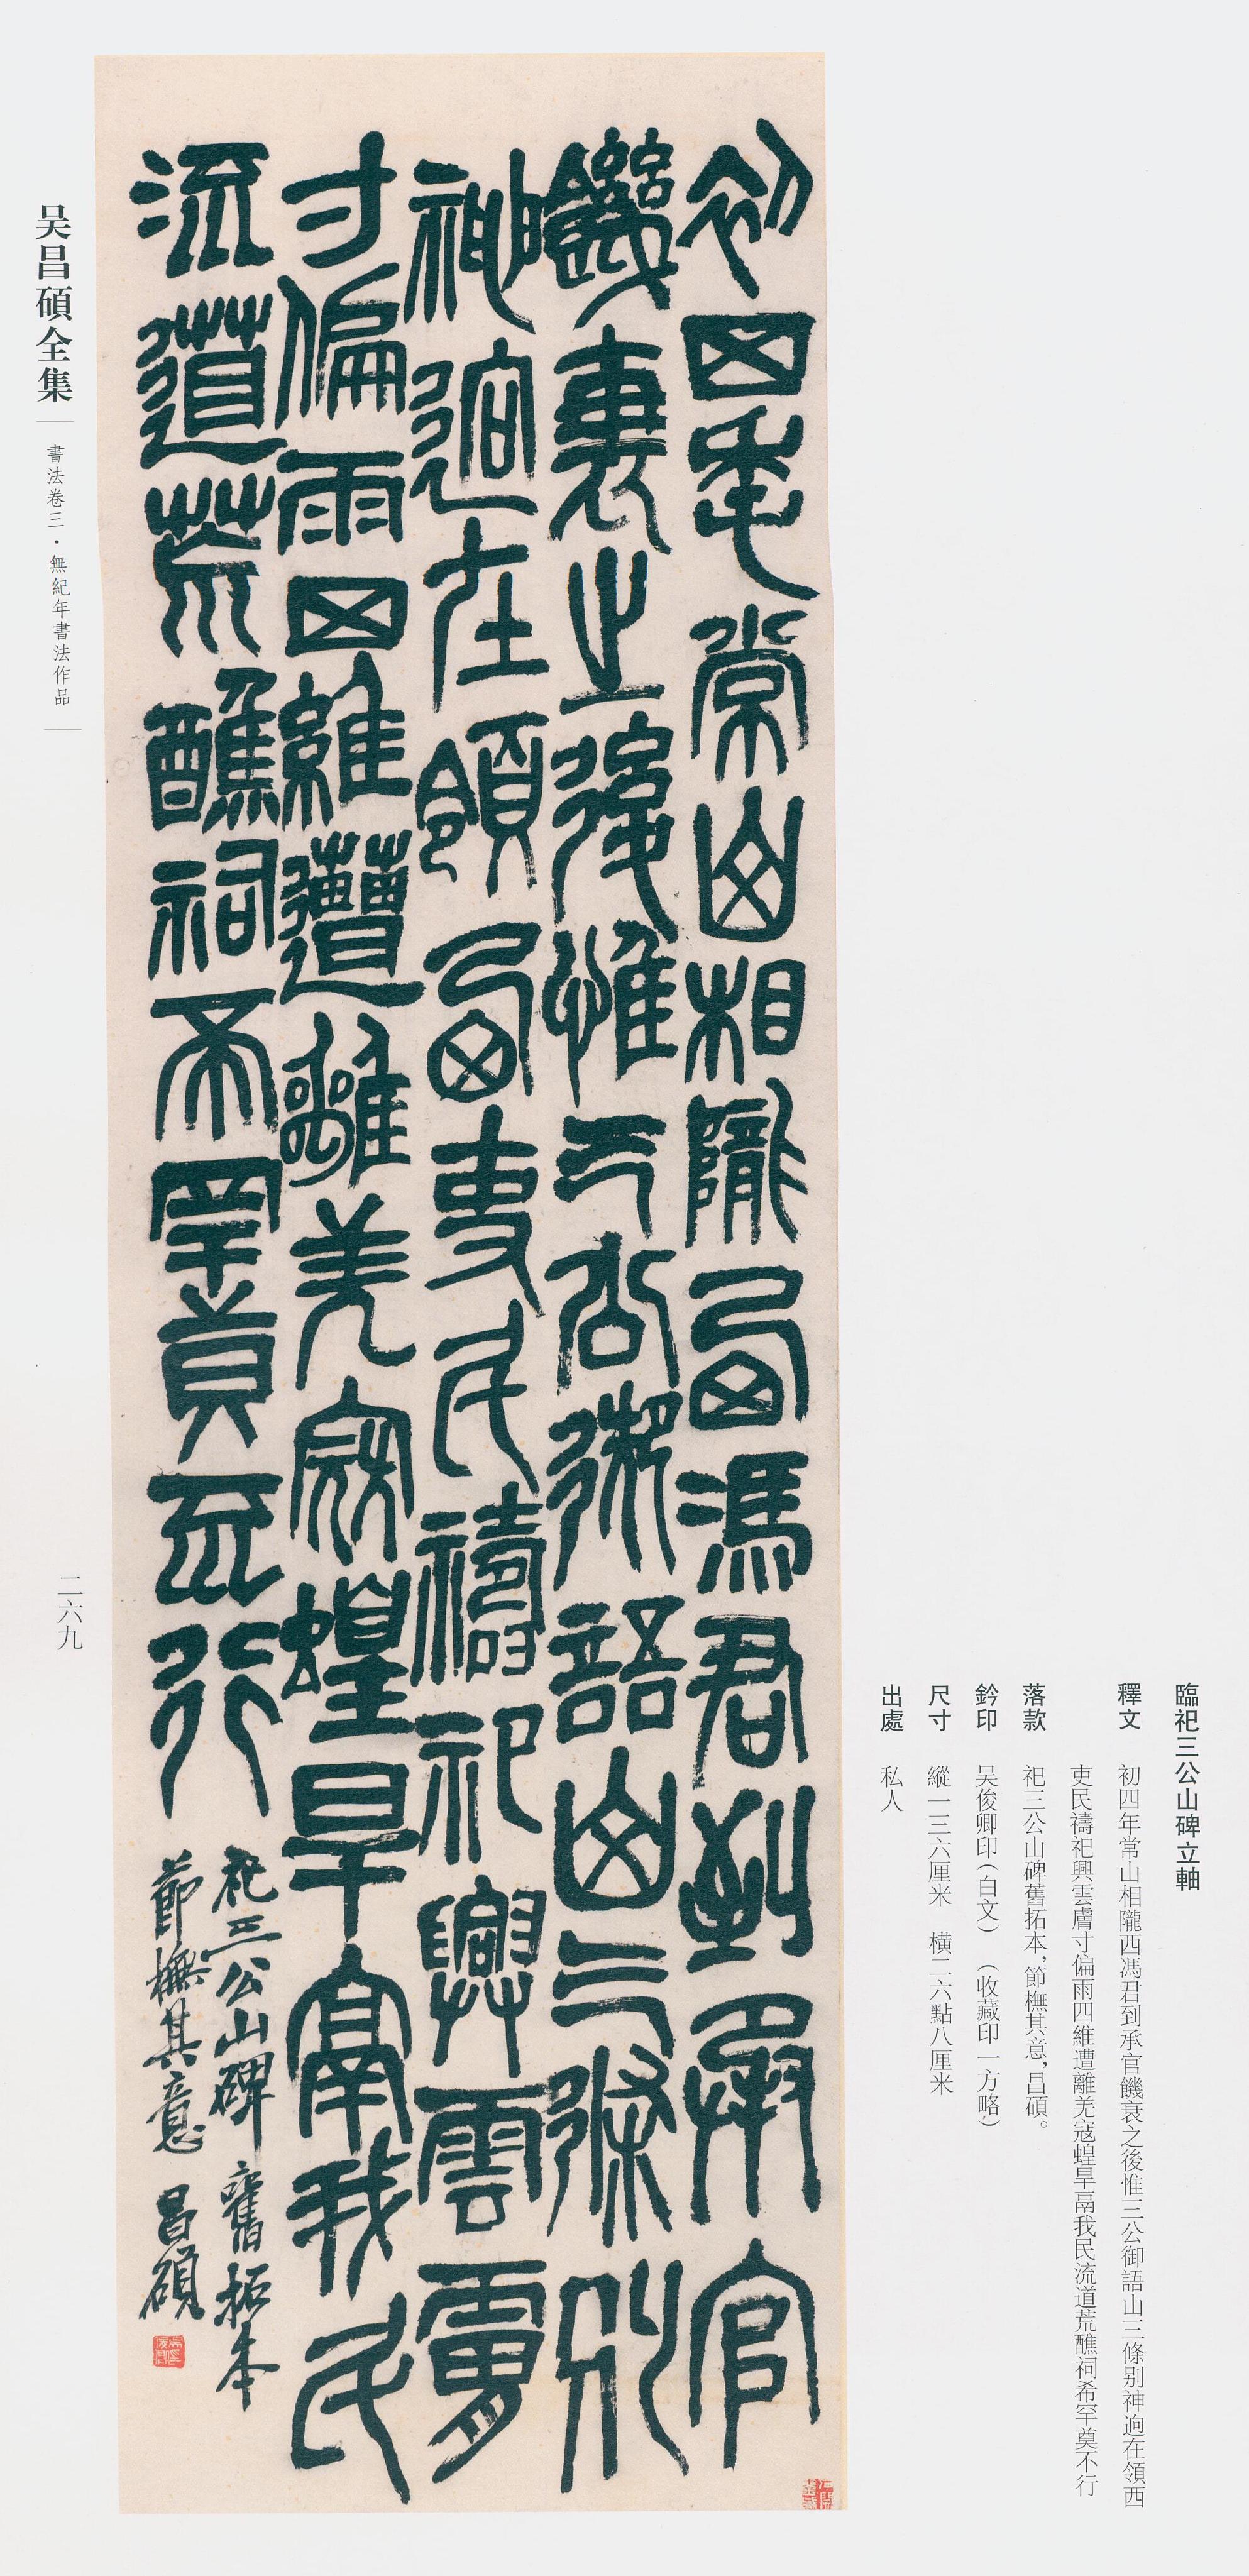 臨祀三公山碑立軸
釋文 初四年常山相隴西馮君到承官饑衰之後惟三公御語山三條别神逈在領西
吏民禱祀興雲膚寸偏雨四維遭離羌寇蝗旱鬲我民流道荒醮祠希罕奠不行
落款 祀三公山碑舊拓本，節橅其意，昌碩。
鈐印 吴俊卿印（白文）（收藏印一方略）
尺寸 縱一三六厘米 橫二六點八厘米
出處 私人
初四年常山相隴西馮君到承官
饑衰之後惟三公御語山三條別
神逈在領西吏民禱祀興雲膚
寸偏雨四維遭離羌寇蝗旱鬲我民
流道荒醮祠希罕奠不行
祀三公山碑舊拓本
節橅其意昌碩
吴昌碩全集
書法卷三·無紀年書法作品
二六九